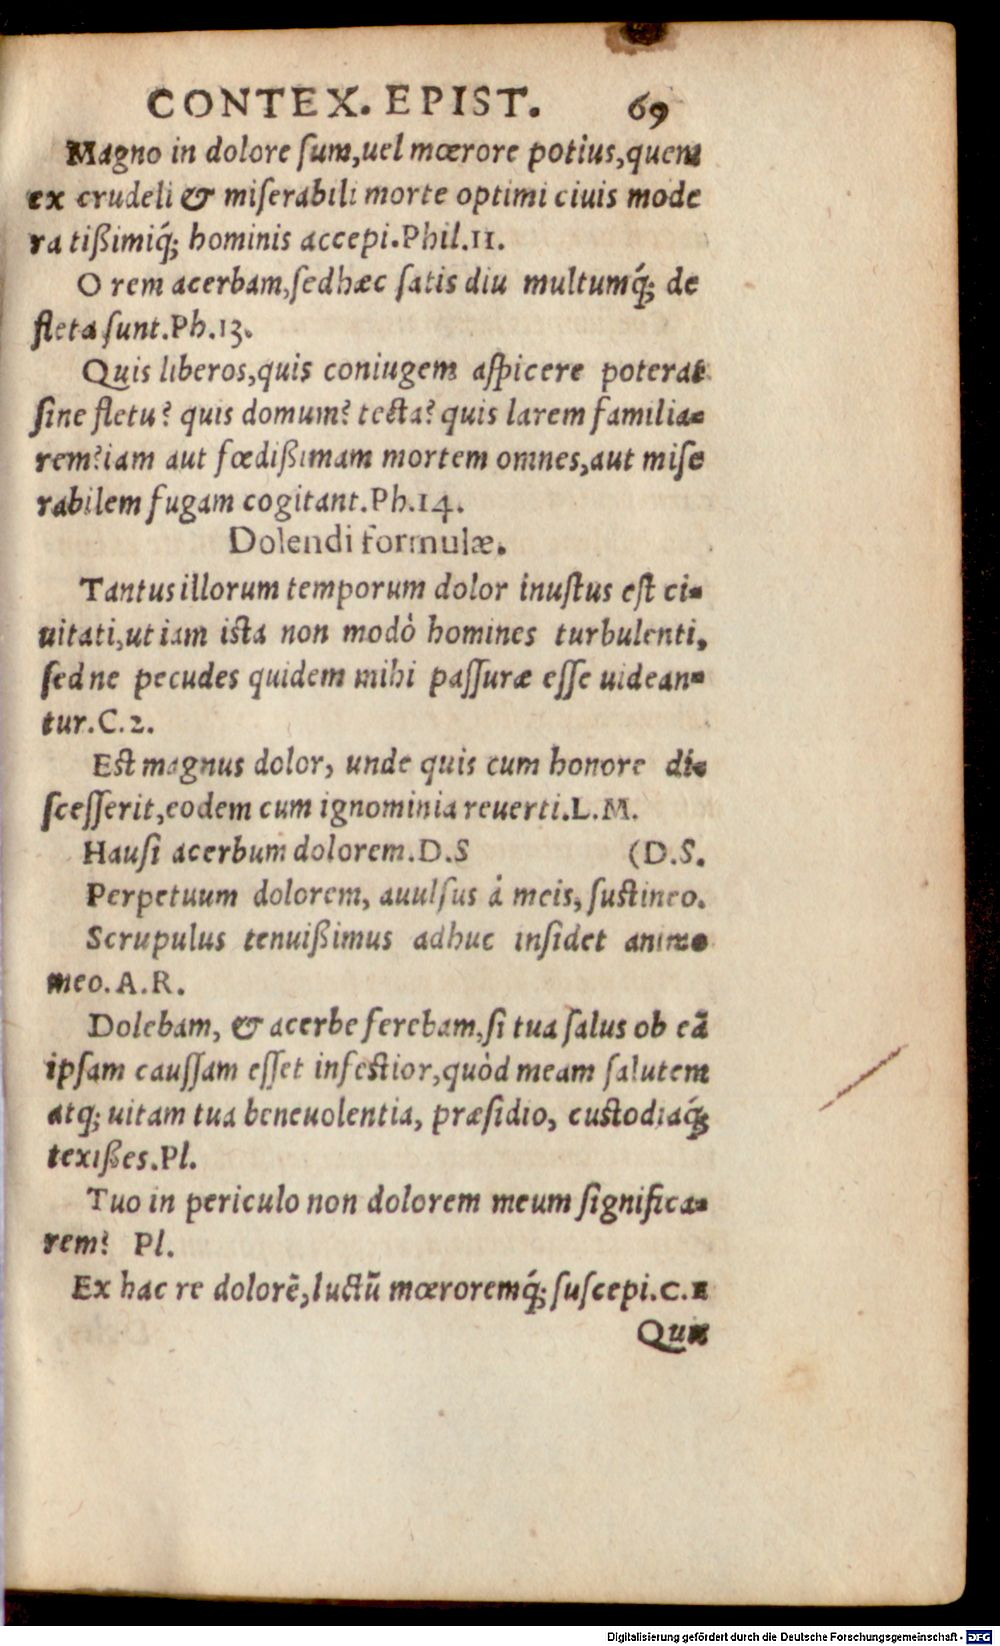 CONTEX. EPIST. 69
Magno in dolore ſum,uel mœrore potius,quem
ex crudeli & miſerabili morte optimi ciuis mode
ratißimiq́; hominis accepi.Phil.11.
O rem acerbam,ſed hæc ſatis diu multumq́; de
fleta ſunt.Ph.13.
Quis liberos,quis coniugem aſpicere poterat
ſine fletu? quis domum? tecta? quis larem familia-
rem?iam aut fœdißimam mortem omnes,aut miſe
rabilem fugam cogitant.Ph.14.
Dolendi formulæ.
Tantus illorum temporum dolor inuſtus eſt ci-
uitati,ut iam iſta non modò homines turbulenti,
ſed ne pecudes quidem mihi paſſuræ eſſe uidean-
tur.C.2.
Eſt magnus dolor, unde quis cum honore di-
ſceſſerit,eodem cum ignominia reuerti.L.M.
Hauſi acerbum dolorem.D.S (D.S.
Perpetuum dolorem, auulſus à meis, ſuſtineo.
Scrupulus tenuißimus adhuc inſidet animo
meo.A.R.
Dolebam, & acerbe ferebam,ſi tua ſalus ob eã
ipſam cauſſam eſſet infeſtior,quòd meam ſalutem
atq; uitam tua beneuolentia, præſidio, cuſtodiaq́;
texißes.Pl.
Tuo in periculo non dolorem meum ſignifica-
rem? Pl.
Ex hac re dolorẽ,luctũ mœroremq́; ſuſcepi.C.1
Quæ
Digitalisierung gefördert durch die Deutsche Forschungsgemeinschaft - DFG